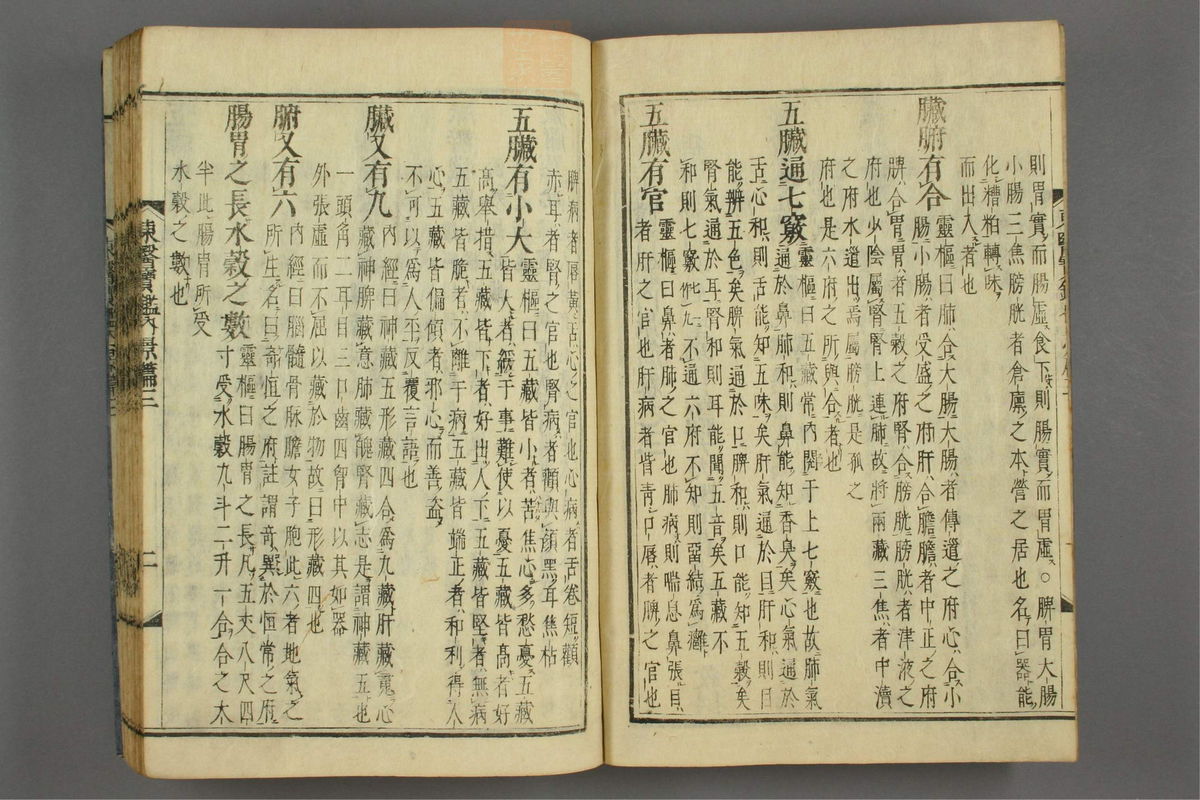 則胃實而腸虛食下則腸實而胃虛○脾胃大腸
小腸三焦膀胱者倉廩之本營之居也名曰器能
化糟粕轉味
而出入者也
臟腑有合靈樞曰肺合大腸大腸者傳道之府心合小
腸小腸者受盛之府肝合膽膽者中正之府
脾合胃胃者五穀之府腎合膀胱膀胱者津液之
府也少陰屬腎腎上連肺故將兩藏三焦者中瀆
之府水道出焉屬膀胱是孤之
府也是六府之所與合者也
五臟通七竅靈樞曰五藏常內閱于上七竅也故肺氣
通於鼻肺和則鼻能知香臭矣心氣通於
舌心和則舌能知五味矣肝氣通於目肝和則目
能辨五色矣脾氣通於口脾和則口能知五穀矣
腎氣通於耳腎和則耳能聞五音矣五藏不
和則七竅不通六府不和則留結爲癰
五臟有官靈樞曰鼻者肺之官也肺病則喘息鼻張目
者肝之官也肝病者皆靑口唇者脾之官也
脾病者唇黃舌心之官也心病者舌卷短顴
赤耳者腎之官也腎病者顴與顔黑耳焦枯
五臟有小大靈樞曰五藏皆小者苦焦心多愁憂五藏
皆大者緩于事難使以憂五藏皆高者好
高舉措五藏皆下者好出人下五藏皆堅者無病
五藏皆脆者不離于病五藏皆端正者和利得人
心五藏皆偏傾者邪心而善盜
不可以爲人平反覆言語也
臟又有九內經曰神藏五形藏四合爲九藏肝藏魂心
藏神脾藏意肺藏魄腎藏志是謂神藏五也
一頭角二耳目三口齒四胷中以其如器
外張虛而不屈以藏於物故曰形藏四也
腑又有六內經曰腦髓骨脉膽女子胞此六者地氣之
所生名曰奇恒之府註謂奇異於恒常之府
腸胃之長水穀之數靈樞曰腸胃之長凡五丈八尺四
寸受水穀九斗二升一合合之大
半此腸胃所受
水穀之數也
東醫寶鑑內景篇三
二